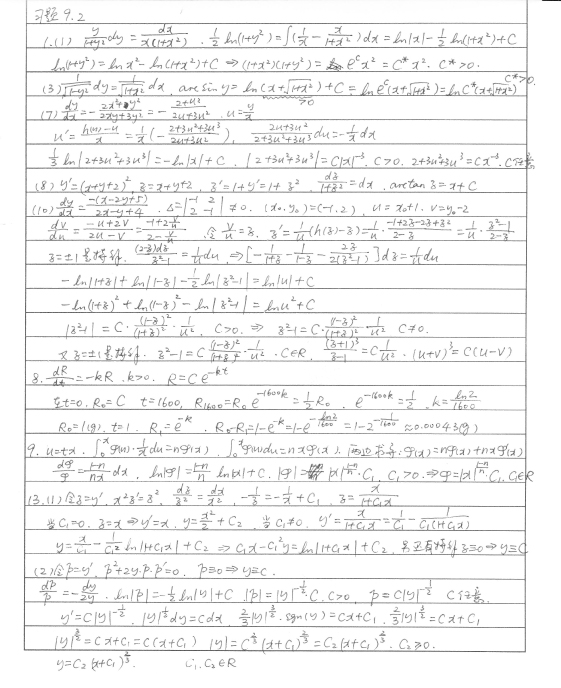 习题 9.2
1.(1) y/(1+y²) dy = dx/(x(1+x²)) . ½ ln(1+y²) = ∫(1/x − x/(1+x²)) dx = ln|x| − ½ ln(1+x²) + C
ln(1+y²) = ln x² − ln(1+x²) + C ⇒ (1+x²)(1+y²) = e^C x² = C* x². C* > 0.
(3) 1/√(1−y²) dy = 1/√(1+x²) dx , arcsin y = ln(x+√(1+x²)) + C = ln e^C (x+√(1+x²)) = ln C*(x+√(1+x²)) C*>0.
>0
(7) dy/dx = − (2x³+ y²)/(2xy+3y²) = − (2+u²)/(2u+3u²) . u = y/x
u' = (h(u)−u)/x = 1/x (− (2+3u²+3u³)/(2u+3u²)) , (2u+3u²)/(2+3u²+3u³) du = −1/x dx
⅓ ln|2+3u²+3u³| = −ln|x| + C . |2+3u²+3u³| = C|x|⁻³. C>0. 2+3u²+3u³ = Cx⁻³. C任意
(8) y' = (x+y+2)², z = x+y+2 . z' = 1+y' = 1+z² . dz/(1+z²) = dx . arctan z = x+C
(10) dy/dx = −(x−2y+5)/(2x−y+4) . Δ = |−1 2; 2 −1| ≠ 0. (x₀.y₀) = (−1.2) , u = x₀+1. v = y₀−2
dv/du = (−u+2v)/(2u−v) = (−1+2v/u)/(2−v/u) . 令 v/u = z. z' = 1/u (h(z)−z) = 1/u · (−1+2z−2z+z²)/(2−z) = 1/u · (z²−1)/(2−z)
z=±1是特解. (2−z)dz/(z²−1) = 1/u du , ⇒ [−1/(1+z) − 1/(1−z) − 2z/(2(z²−1))] dz = 1/u du
− ln|1+z| + ln|1−z| − ½ ln|z²−1| = ln|u| + C
− ln(1+z)² + ln(1−z)² − ln|z²−1| = ln u² + C
|z²−1| = C · (1−z)²/(1+z)² · 1/u² , C>0. ⇒ z²−1 = C · (1−z)²/(1+z)² · 1/u² C≠0.
又 z=±1是特解. z²−1 = C (1−z)²/(1+z)² · 1/u² . C∈R. (z+1)³/(z−1) = C 1/u² . (u+v)³ = C(u−v)
8. dR/dt = −kR . k>0. R = Ce^(−kt)
在t=0. R₀=C t=1600, R₁₆₀₀ = R₀ e^(−1600k) = ½ R₀ . e^(−1600k) = ½ , k = ln2/1600
R₀=1(g). t=1 . R₁ = e^(−k) . R₀−R₁ = 1−e^(−k) = 1−e^(−ln2/1600) = 1−2^(−1/1600) ≈ 0.00043(g)
9. u=tx . ∫₀^x φ(u) · 1/x du = nφ(x) , ∫₀^x φ(u)du = nxφ(x). 两边求导: φ(x) = nφ(x) + nxφ'(x)
dφ/φ = (1−n)/(nx) dx , ln|φ| = (1−n)/n ln|x| + C. |φ| = |x|^((1−n)/n) · C₁ , C₁>0. ⇒ φ = |x|^((1−n)/n) . C₁. C₁∈R
13. (1) 令z=y'. x²z' = z², dz/z² = dx/x² , −1/z = −1/x + C₁ , z = x/(1+C₁x)
当C₁=0. z=x ⇒ y'=x. y = x²/2 + C₂ , 当C₁≠0. y' = x/(1+C₁x) = 1/C₁ − 1/(C₁(1+C₁x))
y = x/C₁ − 1/C₁² ln|1+C₁x| + C₂ ⇒ C₁x − C₁²y = ln|1+C₁x| + C₂ , 另还有特解 z≡0 ⇒ y≡C
(2) 令p=y'. p²+2y·p·p'=0. p≡0 ⇒ y≡C.
dp/p = −dy/2y . ln|p| = −½ ln|y| + C |p| = |y|^(−½) C. C>0, p = C|y|^(−½) C任意.
y' = C|y|^(−½) , |y|^½ dy = Cdx , ⅔|y|^(3/2) . sgn(y) = Cx+C₁ , ⅔|y|^(3/2) = Cx+C₁
|y|^(3/2) = Cx+C₁ = C(x+C₁) |y| = C^(2/3) (x+C₁)^(2/3) = C₂(x+C₁)^(2/3) . C₂≥0.
y = C₂(x+C₁)^(2/3) . C₁.C₂∈R